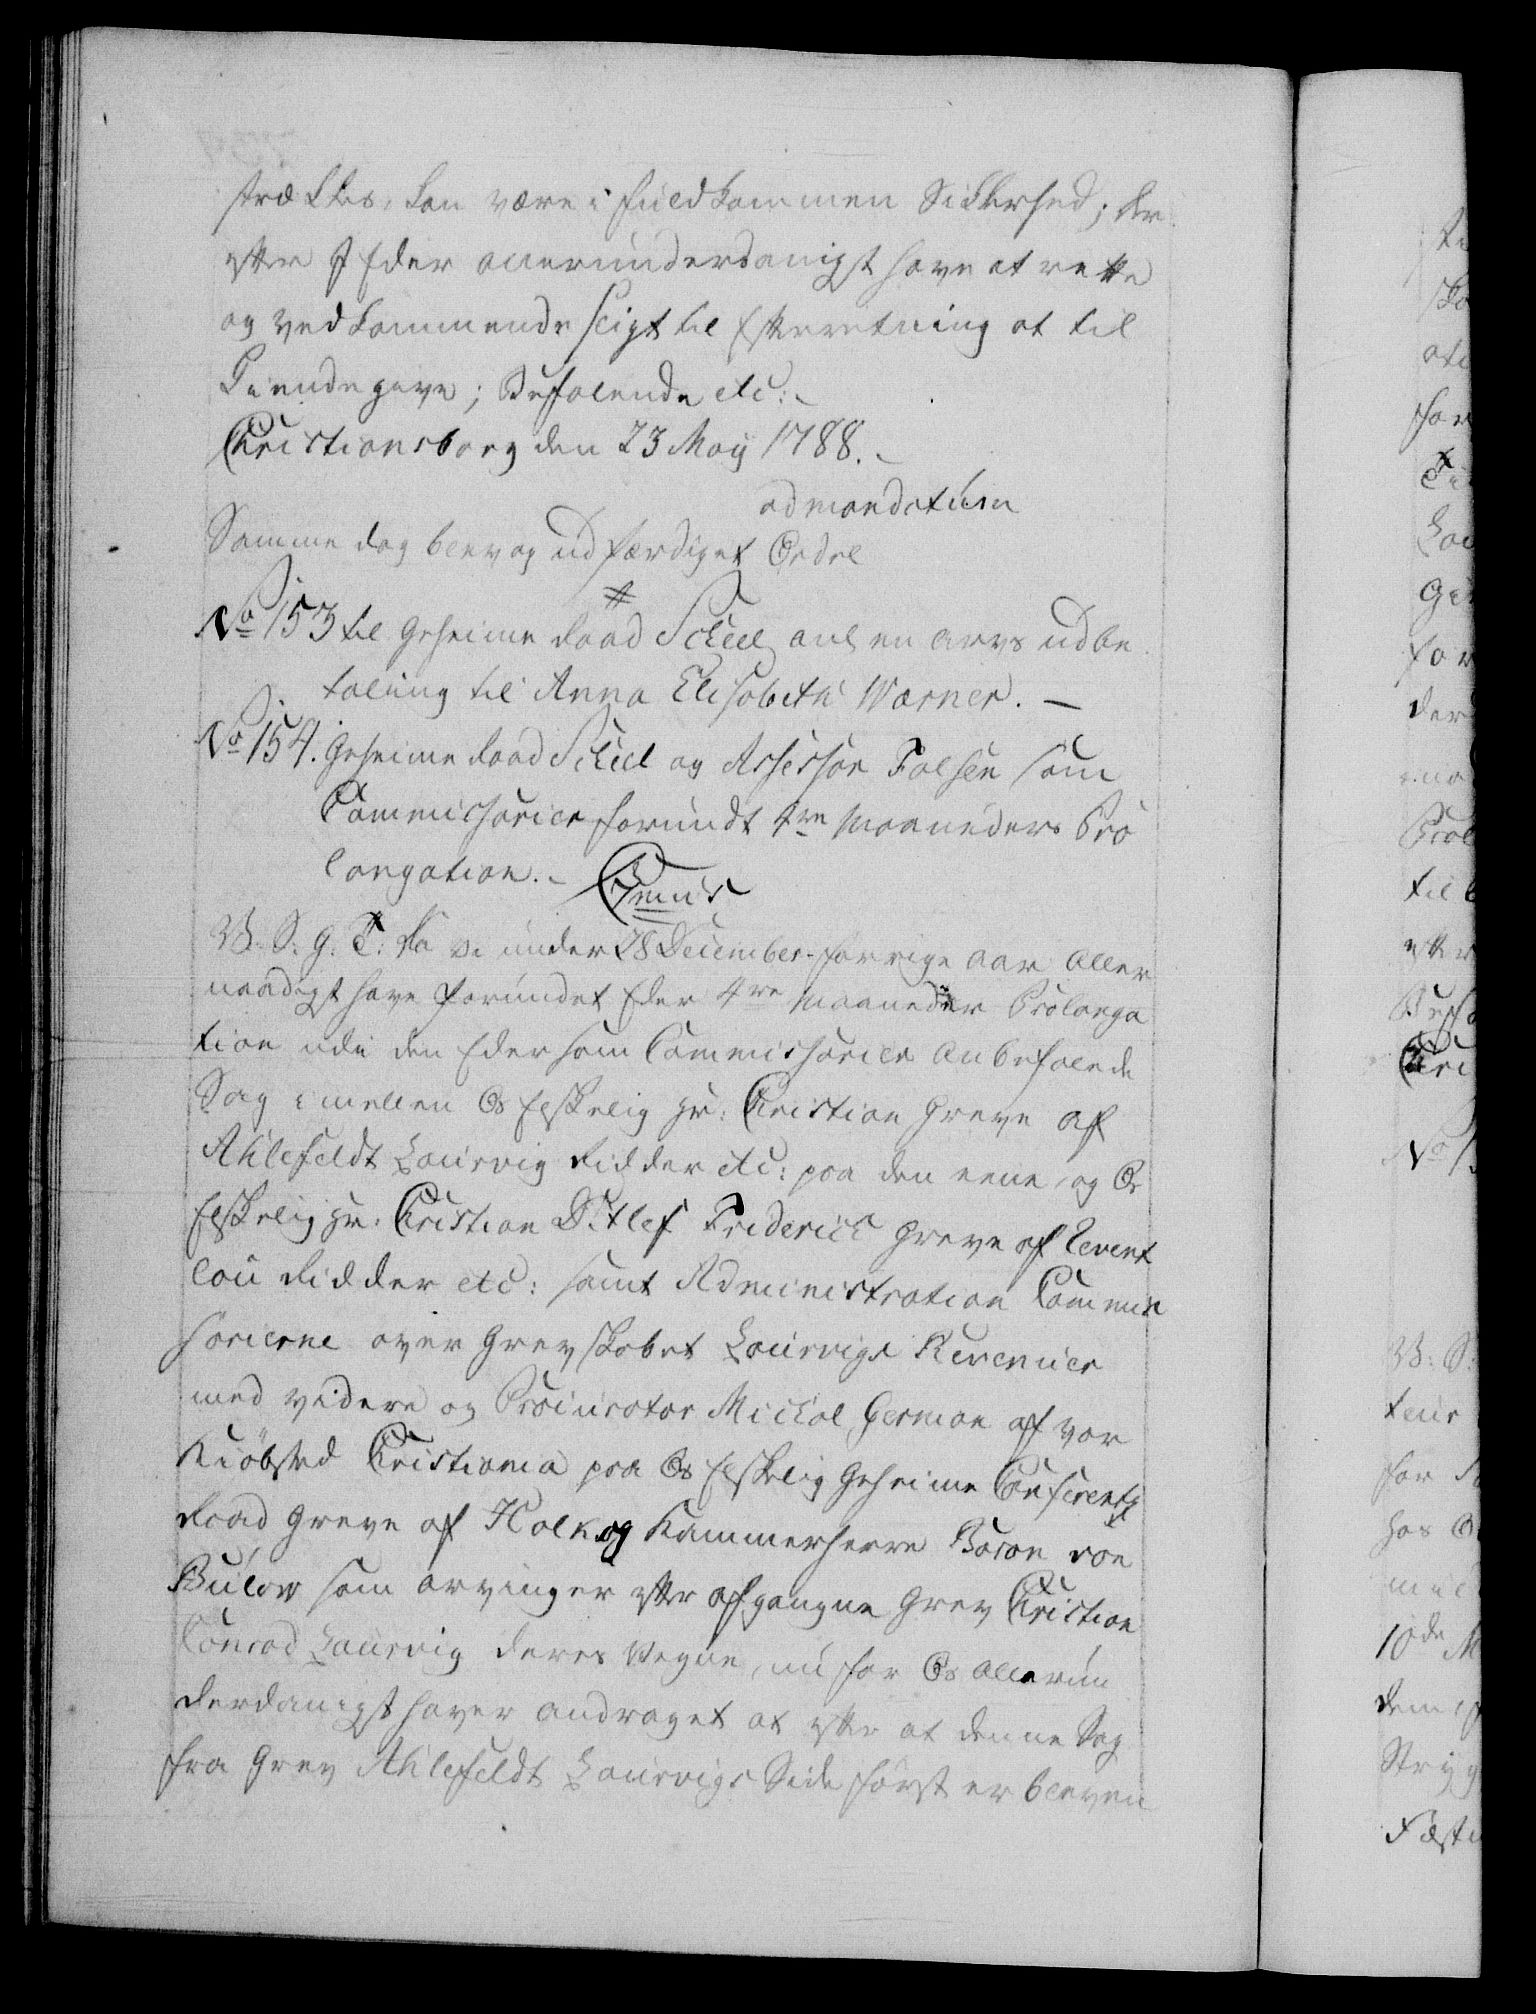 strækkes, kan være i fuldkommen Sikkerhed; der
efter I Eder allerunderdanigst have at rette
og vedkommende sligt til Efterretning at til
kiendegive; Befalende etc:
Christiansborg den 23 Maij 1788.
ad mandatum
Samme dag blev og udfærdiget Ordre
No 153 til Geheime Raad Scheel anl en arvs udbe
taling til Anna Elisabeth Warner. —
No 154. Geheime Raad Scheel og Assessor Falsen som
Commissarier forundt 4re Maaneders Pro
longation.
V. S. G. T. Da Vi under 28 December forrige Aar Aller
naadigst have forundet Eder 4re Maaneder Prolonga
tion udi den Eder som Commissarier anbefalede
Sag imellem Os Elskelig Hr: Christian Greve af
Ahlefeldt Laurvig Ridder etc: paa den eene, og Os
Elskelig Hr: Christian Ditlef Friderich Greve af Revent
lou Ridder etc: samt Administration Commis
sarierne over Grevskabet Laurvigs Revenuer
med videre og Procurator Michal German af vor
Kiøbsted Christiania paa Os Elskelig Geheime Conferentz
Raad Greve af Holk og Kammerherre Baron von
Bülow som arvinger efter afgangne Grev Christian
Conrad Laurvig deres Vegne, nu for Os allerun
derdanigst haver andraget at efter at denne Sag
fra Grev Ahlefeldt Laurvigs Side først er bleven